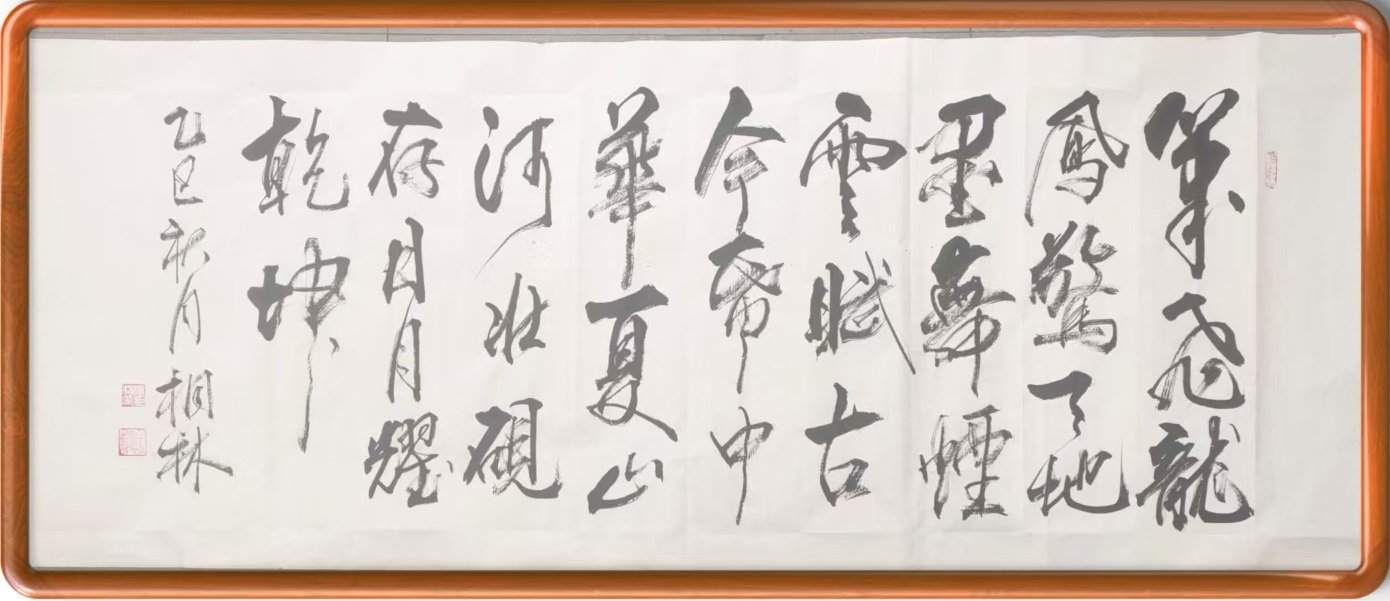 筆飛龍
鳳驚天地
墨舞煙
雲賦古
今帋中
華夏山
河壯硯
存日月耀
乾坤
乙巳秋月桐林